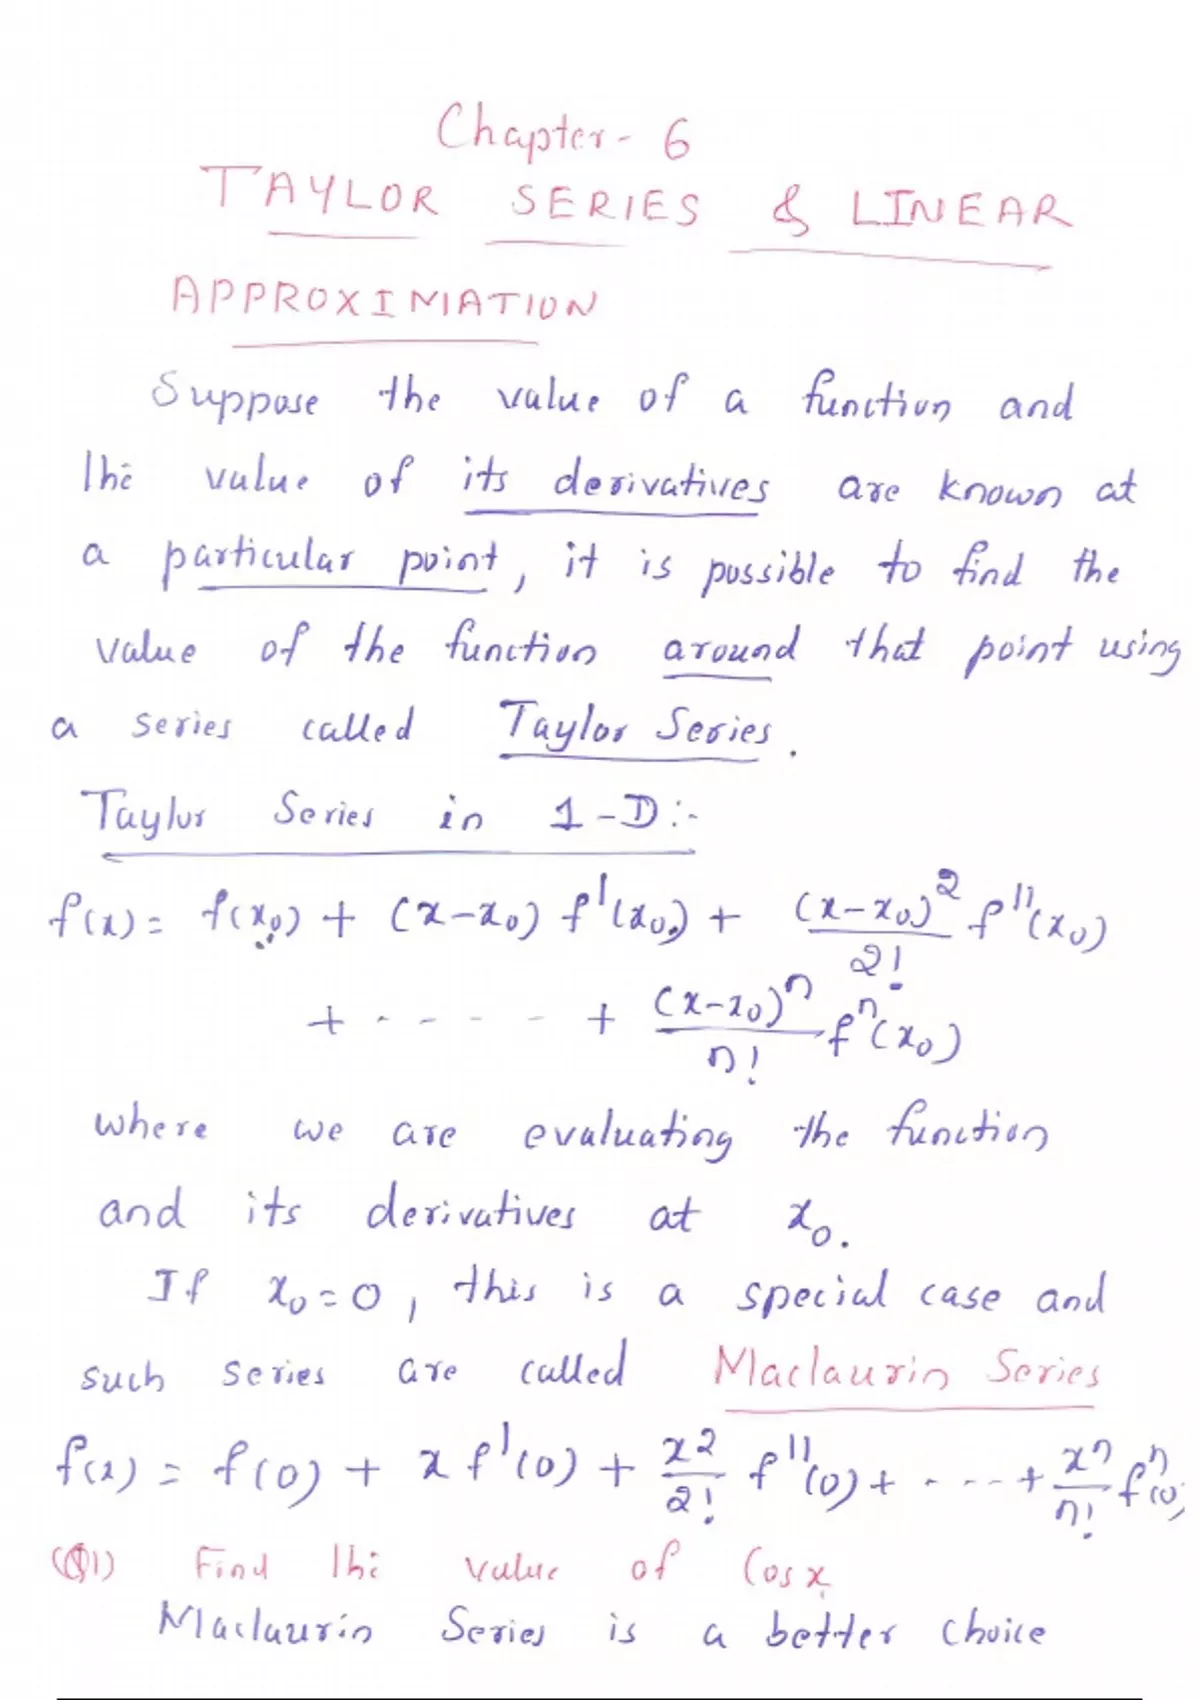 Chapter - 6
TAYLOR SERIES & LINEAR
APPROXIMATION
Suppose the value of a function and
the value of its derivatives are known at
a particular point, it is possible to find the
value of the function around that point using
a series called Taylor Series.
Taylor Series in 1-D :-
f(x) = f(x₀) + (x-x₀) f'(x₀) + (x-x₀)²/2! f''(x₀)
+ - - - - - + (x-x₀)ⁿ/n! fⁿ(x₀)
where we are evaluating the function
and its derivatives at x₀.
If x₀ = 0, this is a special case and
such series are called Maclaurin Series
f(x) = f(0) + x f'(0) + x²/2! f''(0) + - - - - + xⁿ/n! fⁿ(0)
(Q1) Find the value of Cos x
Maclaurin Series is a better choice